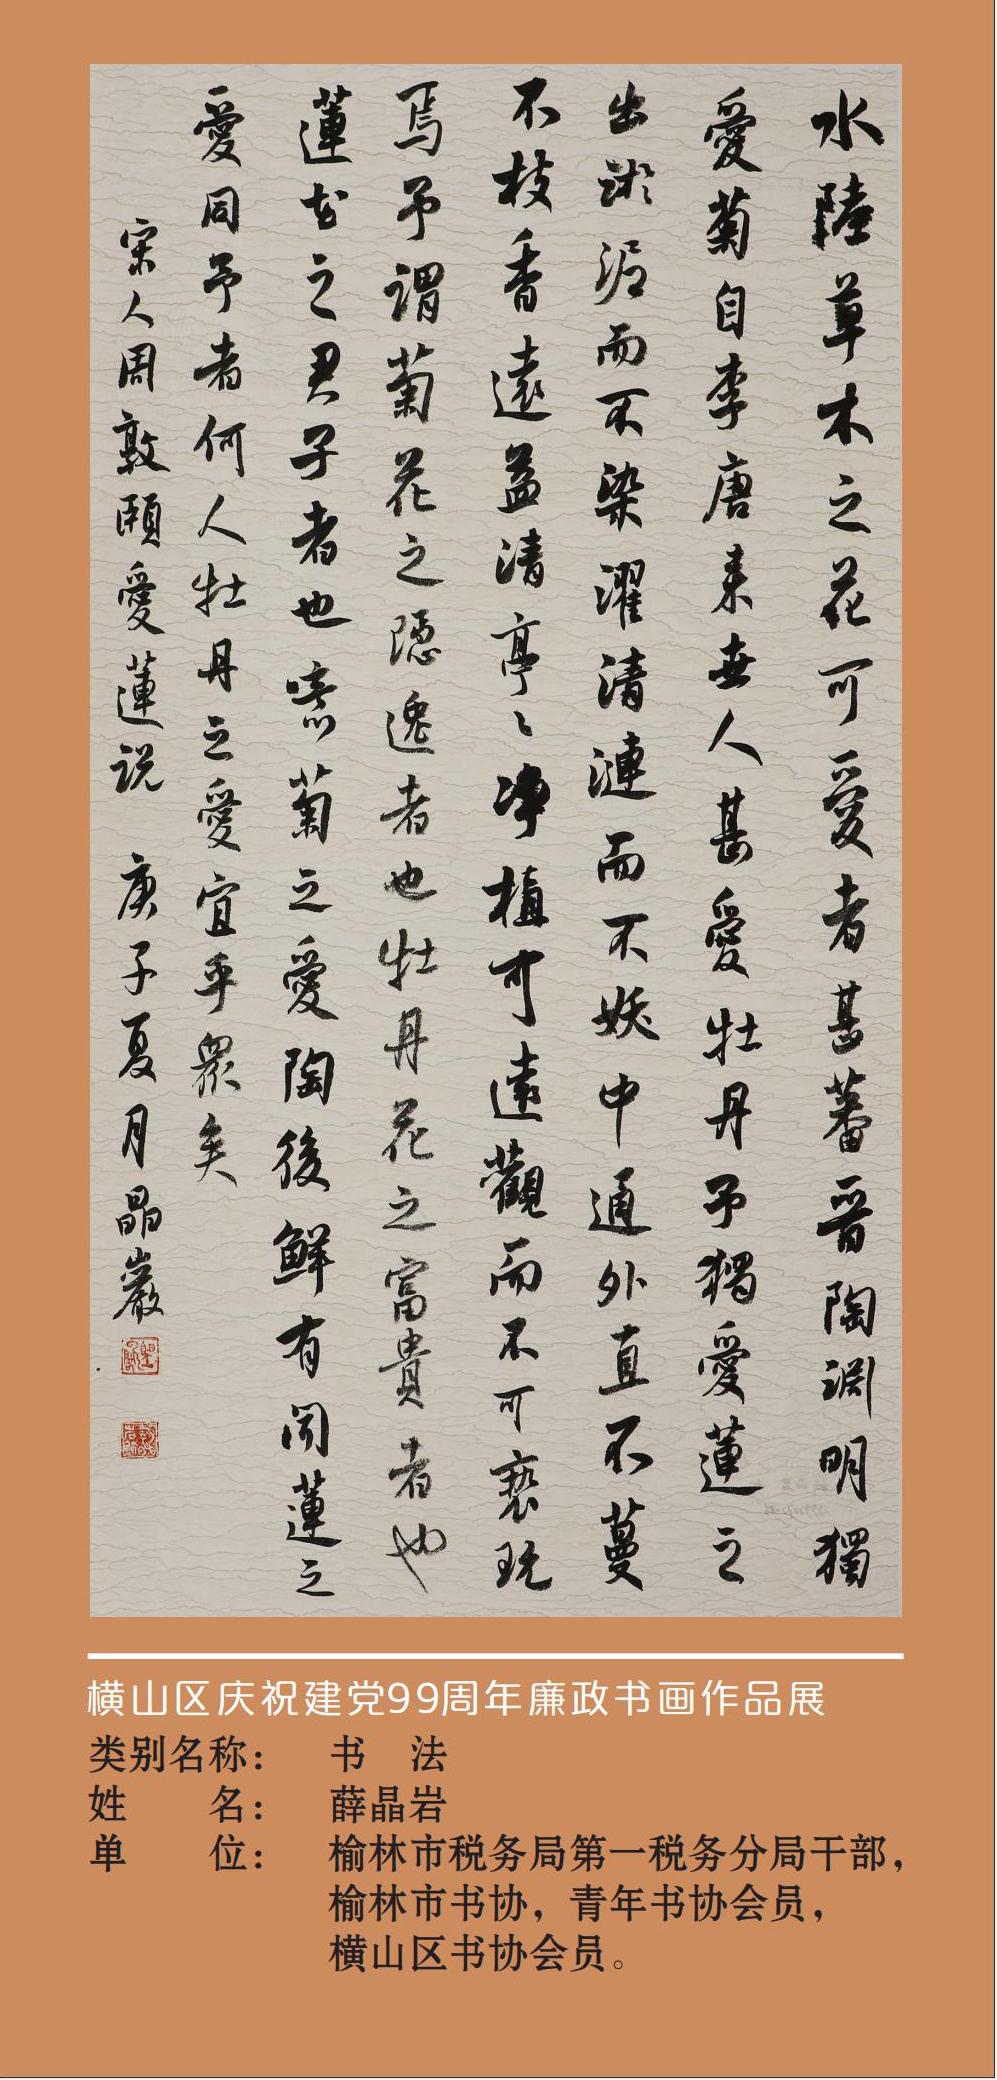 水陸草木之花可愛者甚蕃晉陶淵明獨
愛菊自李唐来世人甚愛牡丹予獨愛蓮之
出淤泥而不染濯清漣而不妖中通外直不蔓
不枝香遠益清亭〻净植可遠觀而不可褻玩
焉予謂菊花之隱逸者也牡丹花之富貴者也
蓮花之君子者也噫菊之愛陶後鮮有聞蓮之
愛同予者何人牡丹之愛宜乎眾矣
宋人周敦頤愛蓮説 庚子夏月晶巖
横山区庆祝建党99周年廉政书画作品展
类别名称： 书 法
姓 名： 薛晶岩
单 位： 榆林市税务局第一税务分局干部，
榆林市书协，青年书协会员，
横山区书协会员。